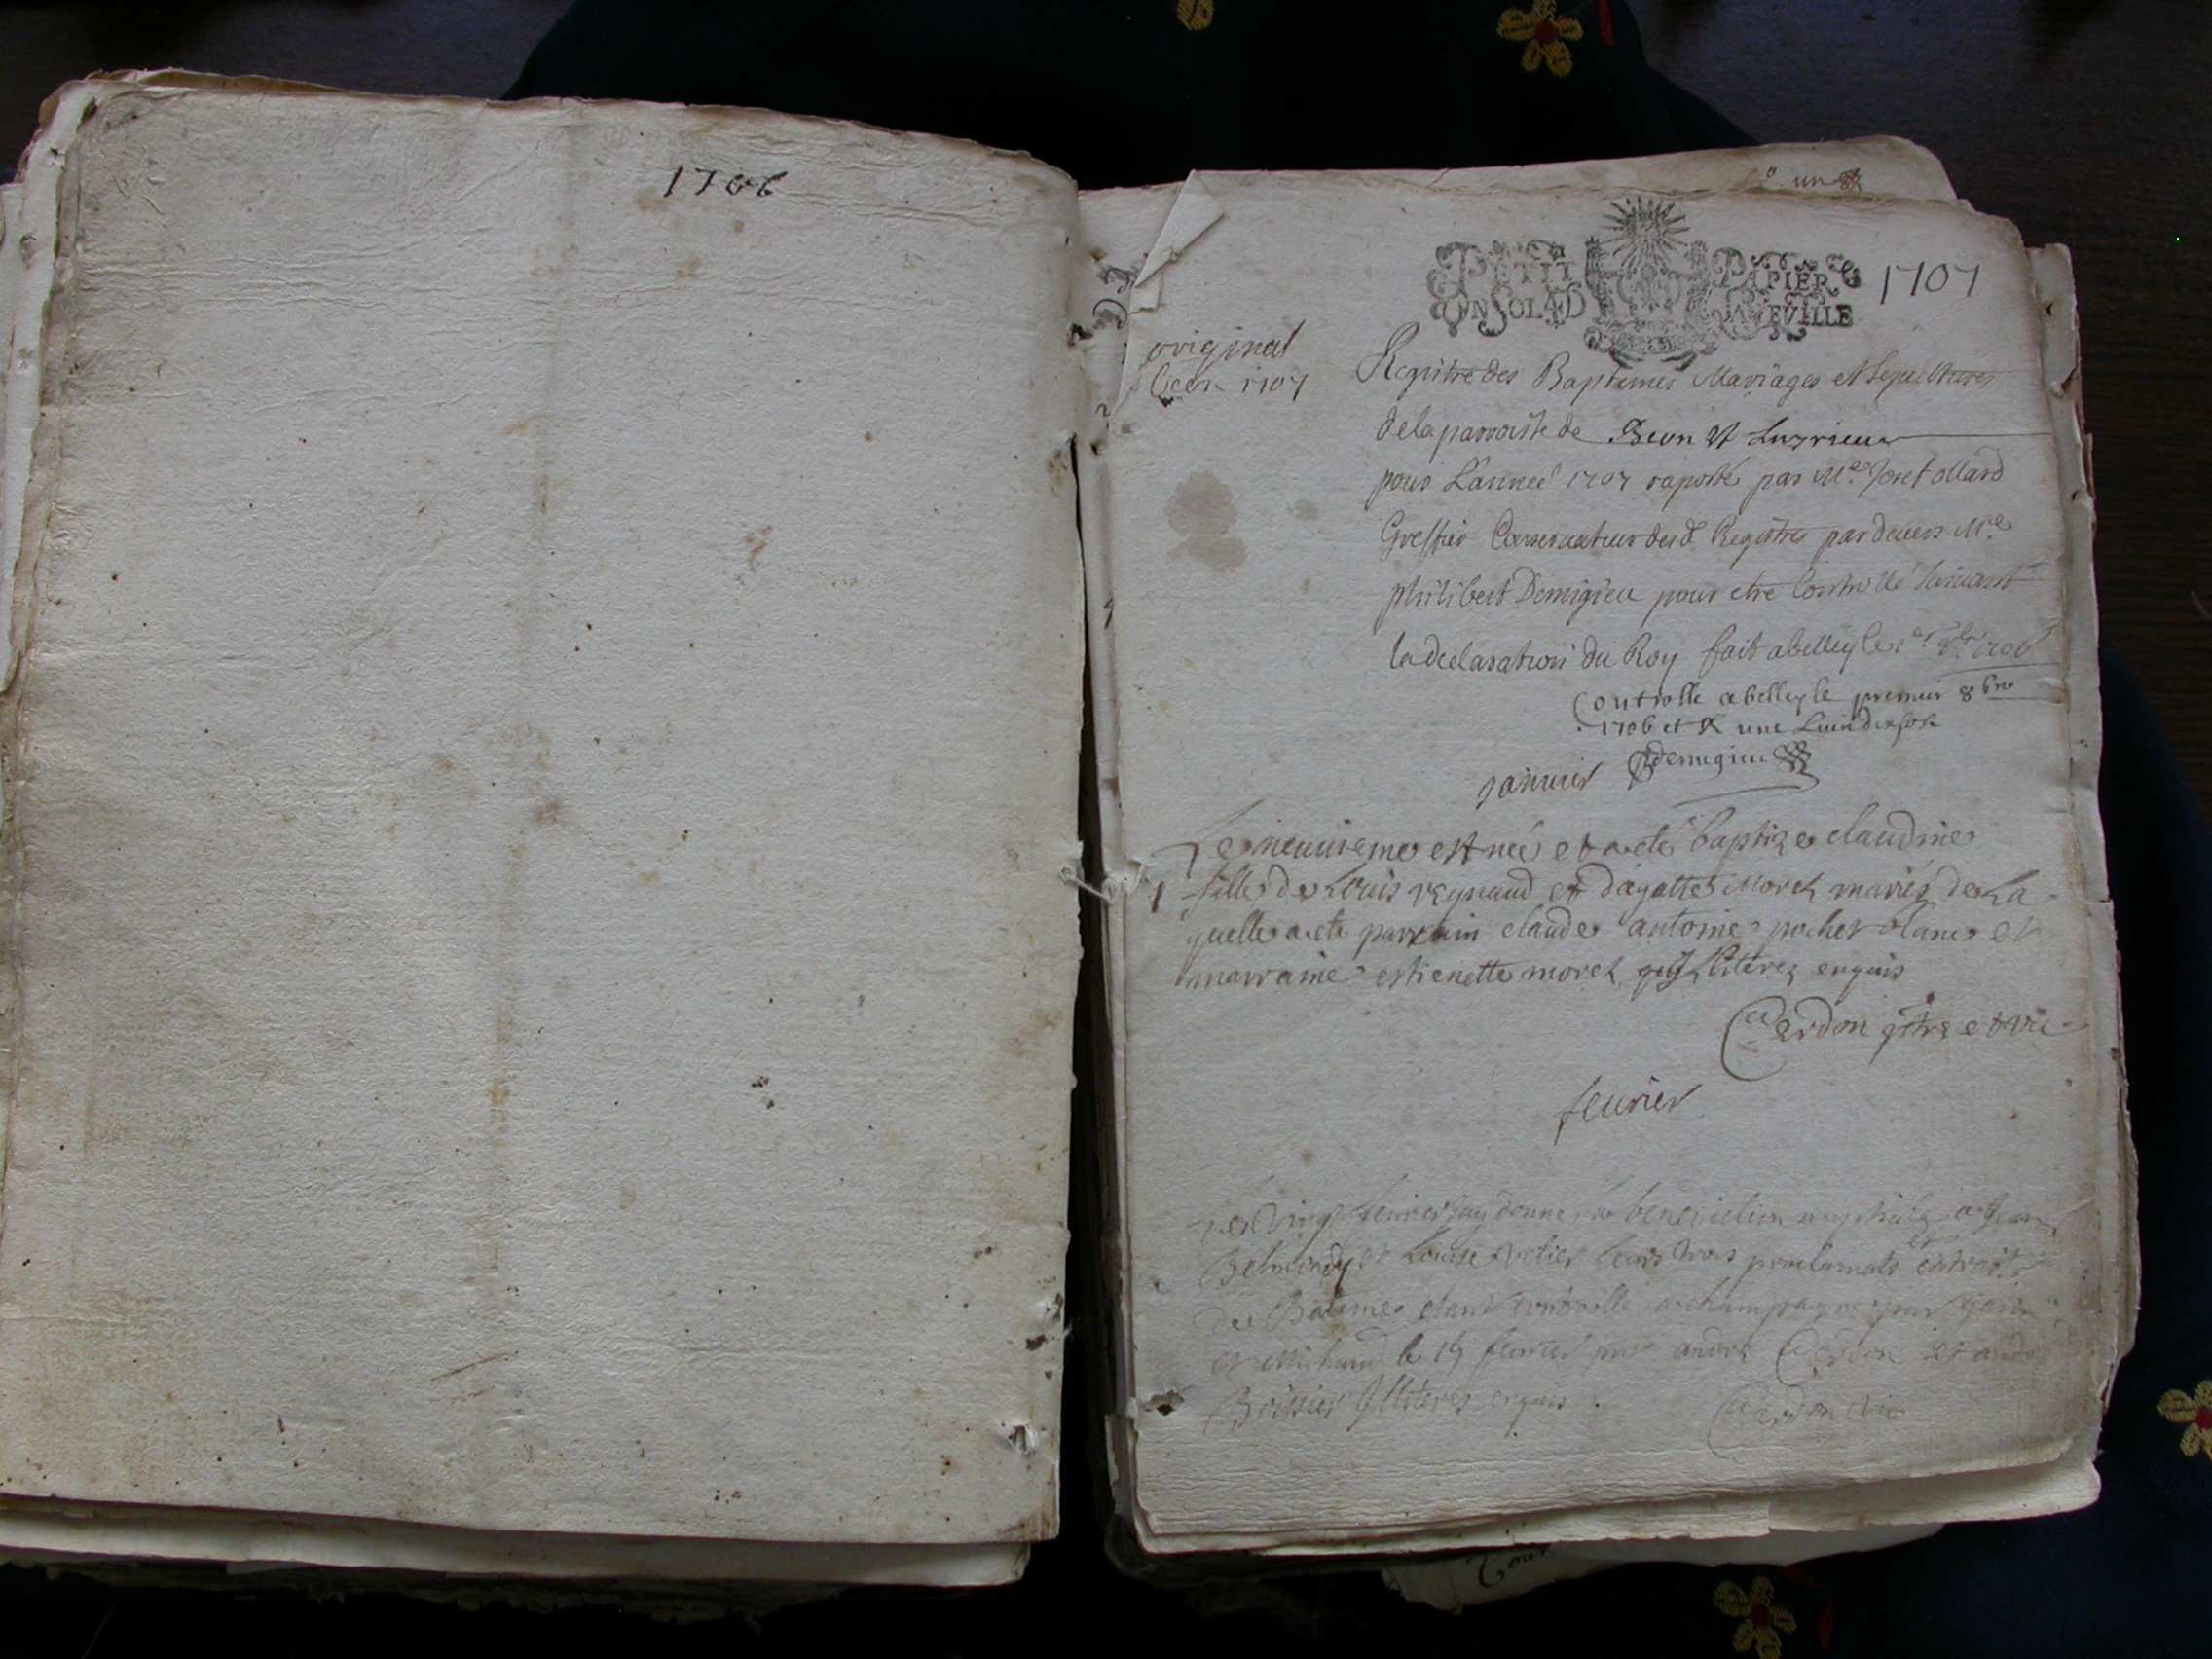 1706
un
PETIT PAPIER
UN SOL 4D LA FEVILLE
1707
original
Beon 1707
Registre des Baptemes Mariages et Sepultures
de la parroisse de Beon et Luyrieux
pour L'année 1707 raporté par Me ollard
Greffier Conservateur desd Registres pardevers Me
philibert Demigieu pour etre Controllé suivant
la declaration du Roy fait a belley le 1er 8bre 1706
Controlle a belley le premier 8bre
1706 et R une Livre dix sols
Demigieu
januier
Le neuuieme est née et a eté baptize claudine
1 fille de Louis reynaud et d'agatte Morel mariés de La
quelle a ete parrain claude antoine pochet blanc et
marraine estienette morel illiterez enquis
Cerdon ptre et vic
feurier
Le Vingt feurier jay donne la benediction nuptiale a Jean
Belmondy et Louise leurs trois proclamats et extrait
de Bateme etant controlle a champagne par
et Michaud le 19 feurier andré Cerdon et andré
Brissier Illiteres enquis .
Cerdon vic